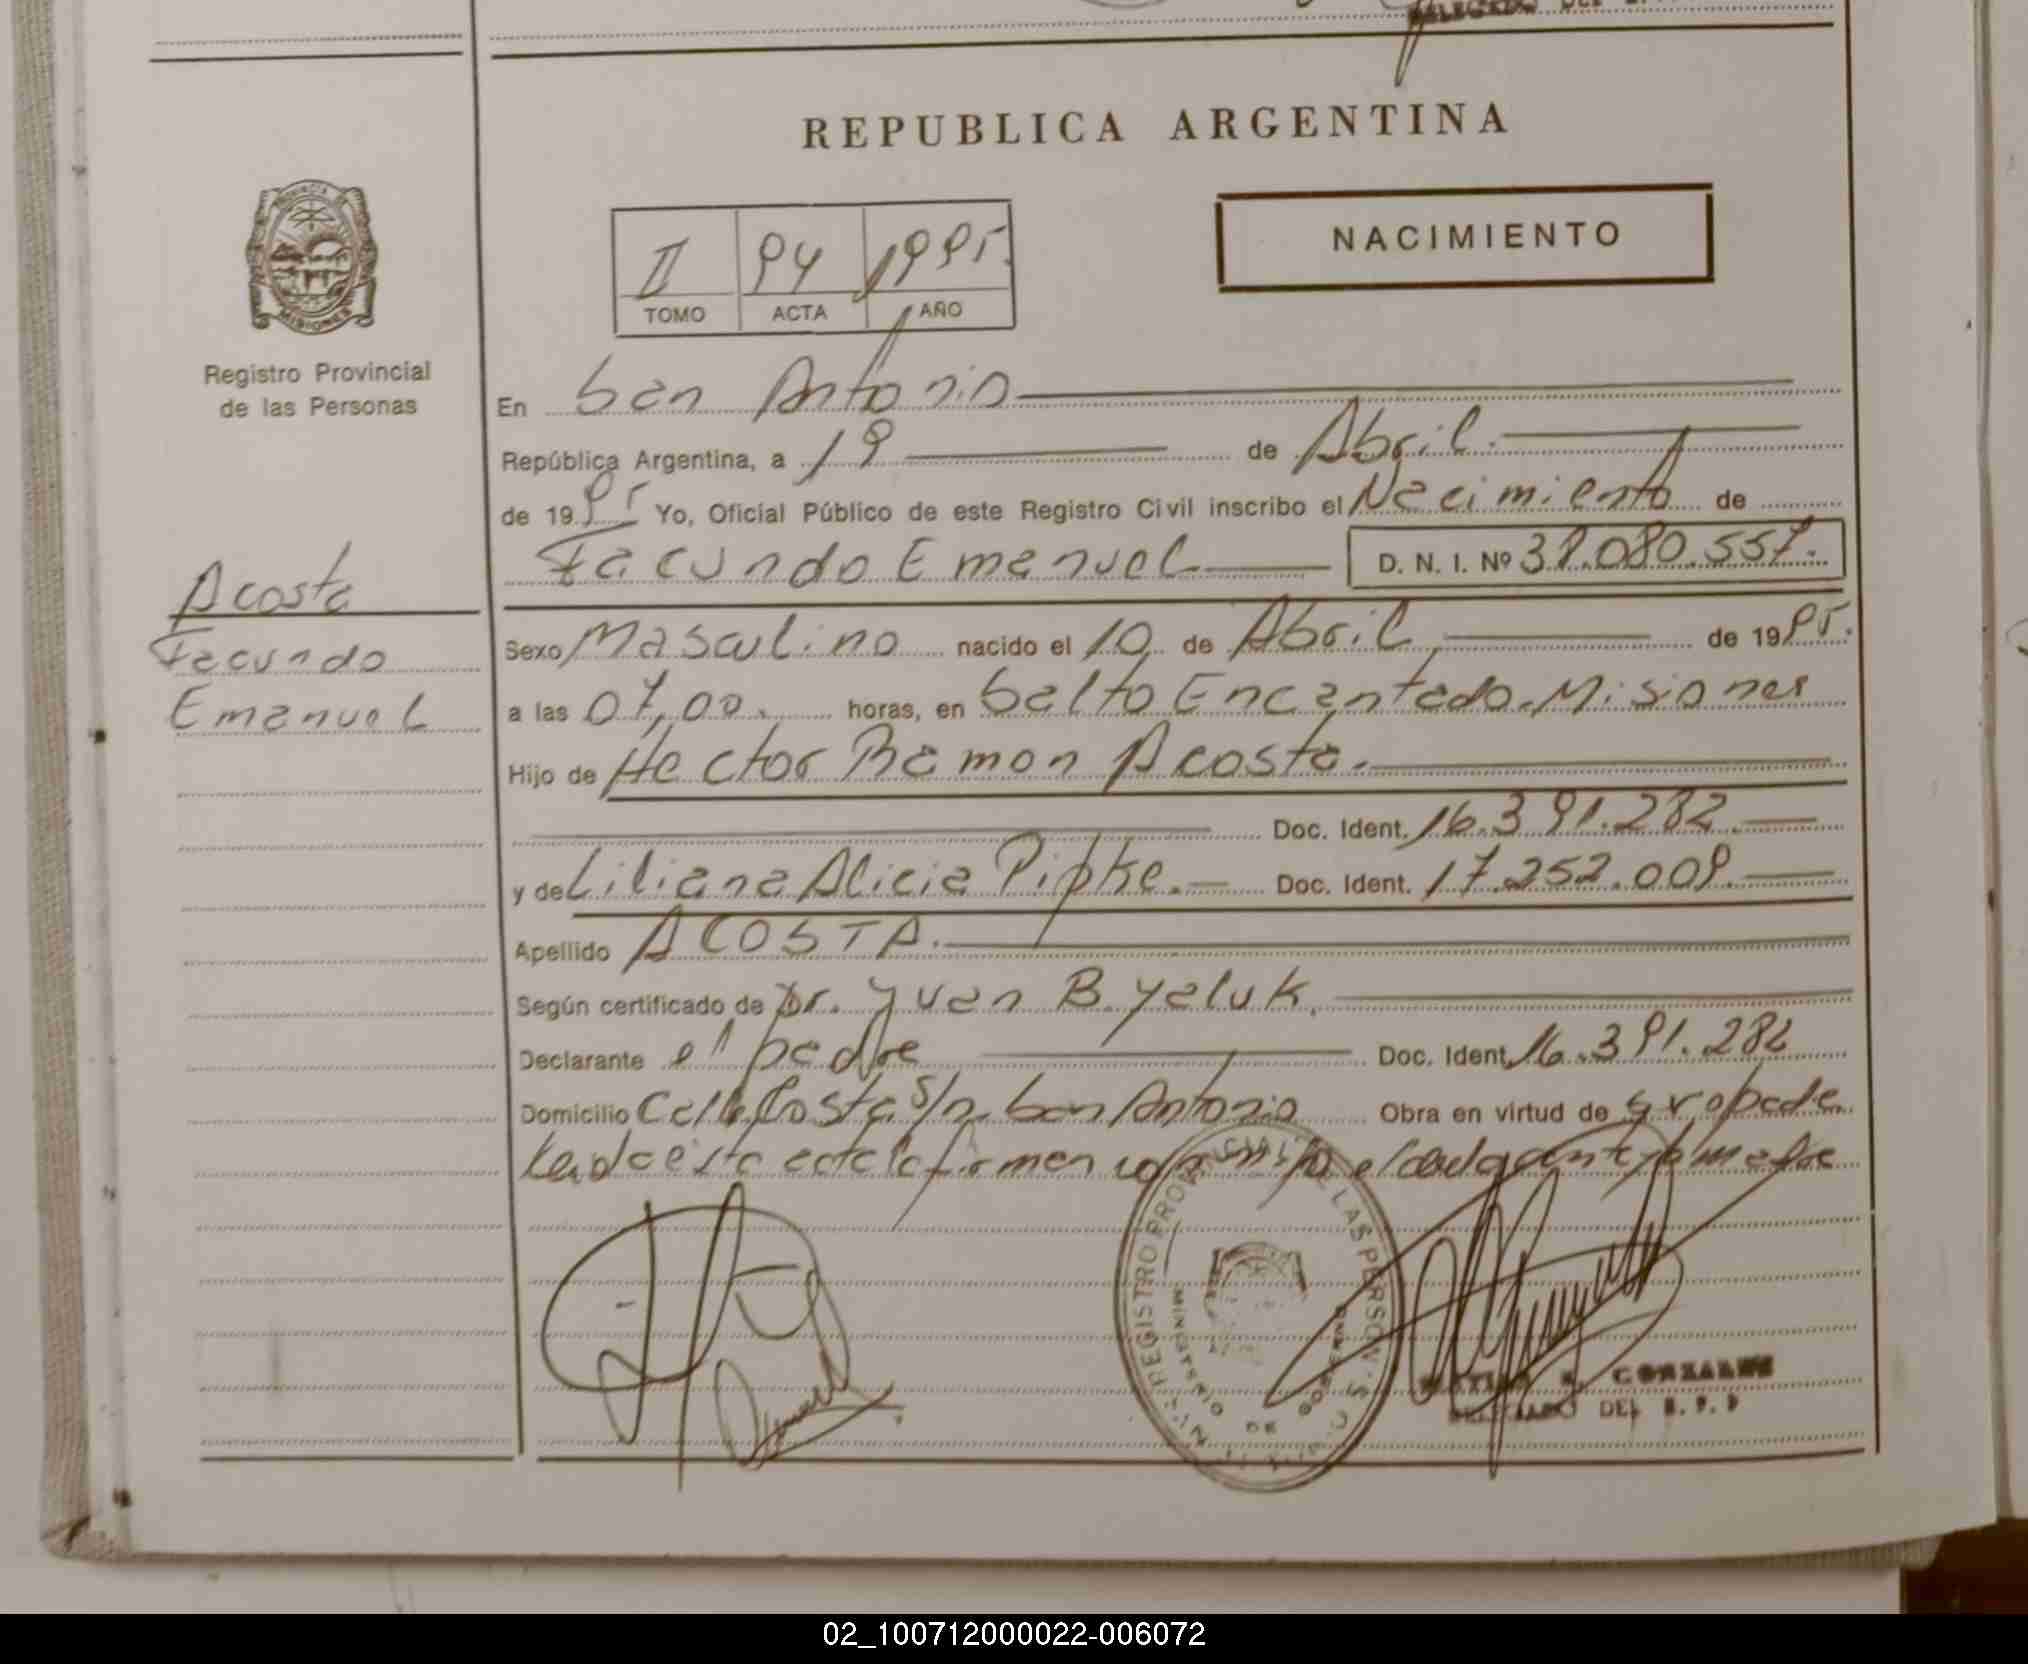 DELEGADO DEL
REPUBLICA ARGENTINA
PROVINCIA
MISIONES
Registro Provincial
de las Personas
II 94 1995.
TOMO ACTA AÑO
NACIMIENTO
En San Antonio
República Argentina, a 19 de Abril.
de 1995 Yo, Oficial Público de este Registro Civil inscribo el Nacimiento de
Facundo Emanuel D. N. I. Nº 38.080.557.
Acosta
Facundo
Emanuel
Sexo Masculino nacido el 10 de Abril de 1995.
a las 07,00. horas, en Salto Encantado. Misiones
Hijo de Hector Ramon Acosta.
Doc. Ident. 16.391.282.
y de Liliana Alicia Pipke. Doc. Ident. 17.252.009.
Apellido ACOSTA.
Según certificado de Dr. Yvan B. Yaluk.
Declarante el padre Doc. Ident. 16.391.282
Domicilio Calle Costa S/n. San Antonio Obra en virtud de
Leida esta acta la firman conmigo el madre
REGISTRO PROVINCIAL DE LAS PERSONAS
MINISTERIO DE GOBIERNO
GONZALEZ
DELEGADO DEL R.P.P
02_100712000022-006072